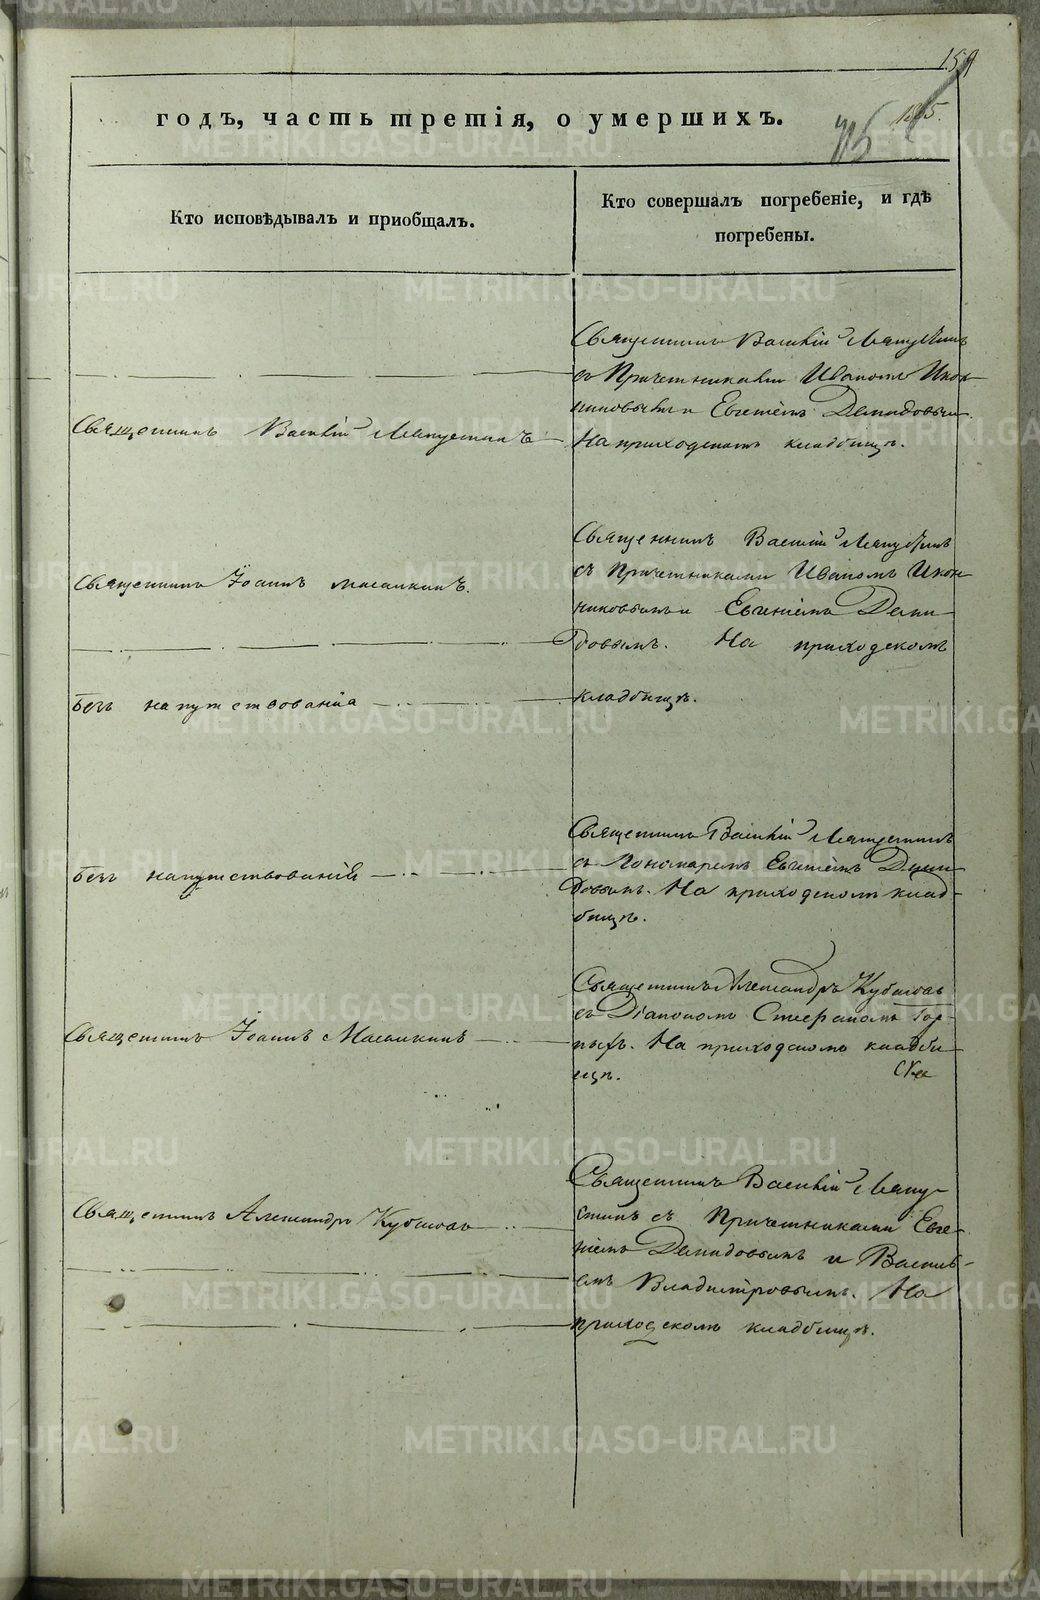 159
годъ, часть третія, о умершихъ.
Кто исповѣдывалъ и приобщалъ.
Кто совершалъ погребеніе, и гдѣ
погребены.
Священникъ Василій Лапустинъ
Священникъ Василій
съ Причетниками Иваномъ Икон-
никовымъ и Евгеніемъ Демидовым.
На приходскомъ кладбищѣ.
Священникъ Іоаннъ Масалкинъ.
Безъ напутствованія
Священникъ Василій
съ Причетниками Иваномъ Икон-
никовымъ и Евгеніемъ Деми-
довымъ. На приходскомъ
кладбищѣ.
Безъ напутствованія
Священникъ Василій Лапустинъ
съ Пономаремъ Евгеніемъ Деми-
довымъ. На приходскомъ клад-
бищѣ.
Священникъ Іоаннъ Масалкинъ
Священникъ Александръ Кубасовъ
съ Діакономъ Стефаномъ Гор-
ныхъ. На приходскомъ кладби-
щѣ.
Священникъ Александръ Кубасовъ
Священникъ Василій Лапу-
стинъ съ Причетниками Евге-
ніемъ Демидовымъ и Василь-
емъ Владиміровымъ. На
приходскомъ кладбищѣ.
METRIKI.GASO-URAL.RU